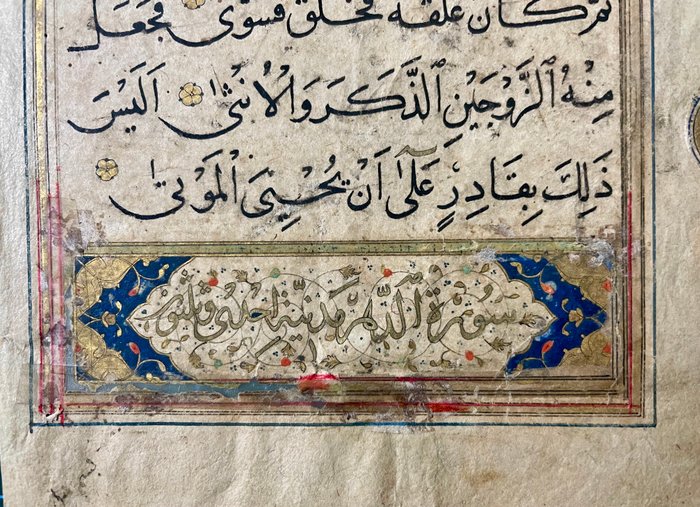 ثم كان علقة فخلق فسوى فجعل
مِنْهُ ٱلزَّوْجَيْنِ ٱلذَّكَرَ وَالْاُنْثىٰ اَلَيْسَ
ذٰلِكَ بِقَادِرٍ عَلىٰٓ اَنْ يُحْيِىَ الْمَوْتىٰ
سورة الدهر مدنية احدى وثلثون